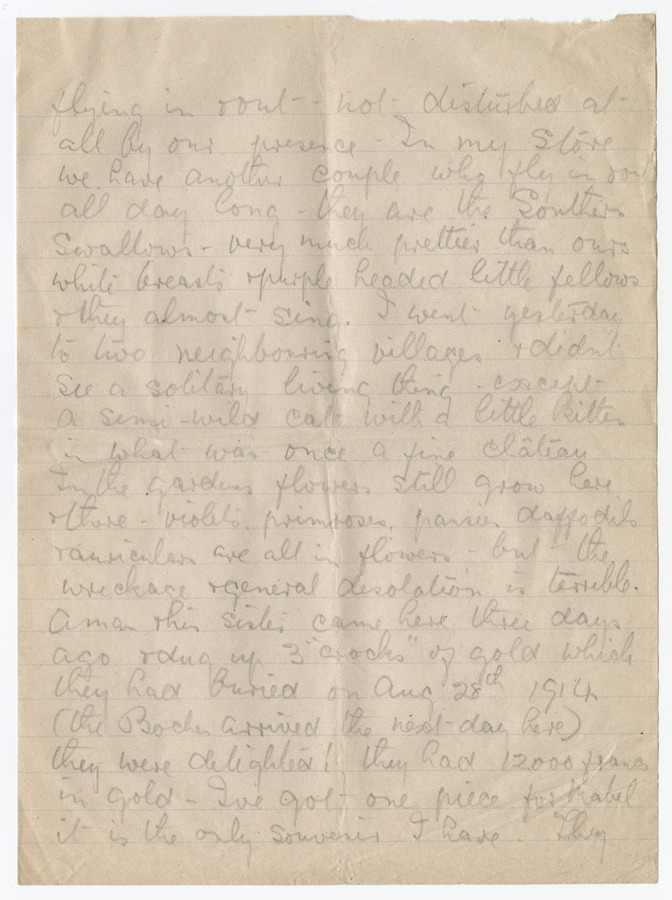 flying in & out - not disturbed at
all by our presence - In my store
we have another couple who fly in & out
all day long - they are the Southern
Swallows - very much prettier than ours
white breasts & purple headed little fellows
& they almost sing. I went yesterday
to two neighbouring villages & didn't
see a solitary living thing except
a semi-wild cat with a little kitten
in what was once a fine château
In the gardens flowers still grow here
& there - violets, primroses, pansies daffodils
& auriculars are all in flowers - but the
wreckage & general desolation is terrible.
A man & his sister came here three days
ago & dug up 3 "crocks" of gold which
they had buried on Aug 28th 1914
(the Boches arrived the next day here)
they were delighted! they had 12000 francs
in gold - I've got one piece for Mabel
it is the only souvenir I have. They